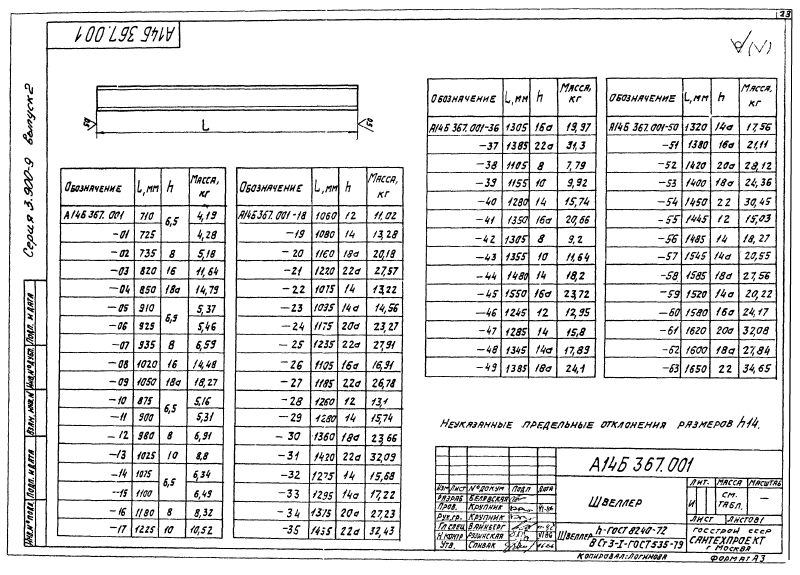 23
А14Б 367.001
√(√)
Серия 3.900-9 выпуск 2
50
L
50
Обозначение L,мм h Масса, кг
А14Б 367.001 710 6,5 4,19
-01 725 4,28
-02 735 8 5,18
-03 820 16 11,64
-04 850 18а 14,79
-05 910 6,5 5,37
-06 925 5,46
-07 935 8 6,59
-08 1020 16 14,48
-09 1050 18а 18,27
-10 875 6,5 5,16
-11 900 5,31
-12 980 8 6,91
-13 1025 10 8,8
-14 1075 6,5 6,34
-15 1100 6,49
-16 1180 8 8,32
-17 1225 10 10,52
Обозначение L,мм h Масса, кг
А14Б 367.001-18 1060 12 11,02
-19 1080 14 13,28
-20 1160 18а 20,18
-21 1220 22а 27,57
-22 1075 14 13,22
-23 1095 14а 14,56
-24 1175 20а 23,27
-25 1235 22а 27,91
-26 1105 16а 16,91
-27 1185 22а 26,78
-28 1260 12 13,1
-29 1280 14 15,74
-30 1360 18а 23,66
-31 1420 22а 32,09
-32 1275 14 15,68
-33 1295 14а 17,22
-34 1375 20а 27,23
-35 1435 22а 32,43
Обозначение L,мм h Масса, кг
А14Б 367.001-36 1305 16а 19,97
-37 1385 22а 31,3
-38 1105 8 7,79
-39 1155 10 9,92
-40 1280 14 15,74
-41 1350 16а 20,66
-42 1305 8 9,2
-43 1355 10 11,64
-44 1480 14 18,2
-45 1550 16а 23,72
-46 1245 12 12,95
-47 1285 14 15,8
-48 1345 14а 17,89
-49 1385 18а 24,1
Обозначение L,мм h Масса, кг
А14Б 367.001-50 1320 14а 17,56
-51 1380 16а 21,11
-52 1420 20а 28,12
-53 1400 18а 24,36
-54 1450 22 30,45
-55 1445 12 15,03
-56 1485 14 18,27
-57 1545 14а 20,55
-58 1585 18а 27,56
-59 1520 14а 20,22
-60 1580 16а 24,17
-61 1620 20а 32,08
-62 1600 18а 27,84
-63 1650 22 34,65
Неуказанные предельные отклонения размеров h14.
Инв.№ подл. Подп. и дата Взам. инв.№ Инв.№ дубл. Подп. и дата
А14Б 367.001
Изм Лист № докум Подп Дата
Разраб. Белявская
Пров. Крупник
Рук.гр. Крупник
Гл.спец. Вайнберг
Н.контр Рузинская
Утв. Спивак
Швеллер
Лит. Масса Масштаб
И см. табл. —
Лист Листов 1
Швеллер h-ГОСТ 8240-72
В Ст 3-I-ГОСТ 535-79
Госстрой СССР
САНТЕХПРОЕКТ
г Москва
Копировал: Логинова
Формат А3